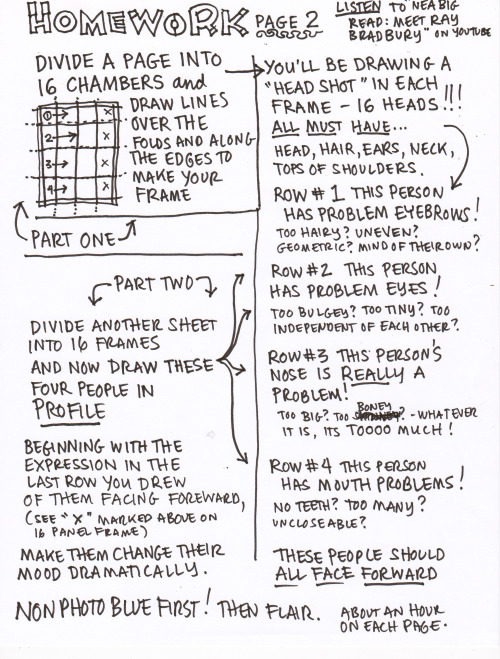 HOMEWORK PAGE 2
LISTEN TO "NEA BIG
READ: MEET RAY
BRADBURY" ON YOUTUBE
DIVIDE A PAGE INTO
16 CHAMBERS and
DRAW LINES
OVER THE
FOLDS AND ALONG
THE EDGES TO
MAKE YOUR
FRAME
1 X
2 X
3 X
4 X
PART ONE
YOU'LL BE DRAWING A
"HEAD SHOT" IN EACH
FRAME - 16 HEADS!!!
ALL MUST HAVE...
HEAD, HAIR, EARS, NECK,
TOPS OF SHOULDERS.
ROW #1 THIS PERSON
HAS PROBLEM EYEBROWS!
TOO HAIRY? UNEVEN?
GEOMETRIC? MIND OF THEIR OWN?
ROW #2 THIS PERSON
HAS PROBLEM EYES!
TOO BULGEY? TOO TINY? TOO
INDEPENDENT OF EACH OTHER?
ROW #3 THIS PERSON'S
NOSE IS REALLY A
PROBLEM!
TOO BIG? TOO BONEY? - WHATEVER
IT IS, ITS TOOOO MUCH!
ROW #4 THIS PERSON
HAS MOUTH PROBLEMS!
NO TEETH? TOO MANY?
UNCLOSEABLE?
THESE PEOPLE SHOULD
ALL FACE FORWARD
PART TWO
DIVIDE ANOTHER SHEET
INTO 16 FRAMES
AND NOW DRAW THESE
FOUR PEOPLE IN
PROFILE
BEGINNING WITH THE
EXPRESSION IN THE
LAST ROW YOU DREW
OF THEM FACING FOREWARD,
(SEE "X" MARKED ABOVE ON
16 PANEL FRAME)
MAKE THEM CHANGE THEIR
MOOD DRAMATICALLY.
NON PHOTO BLUE FIRST! THEN FLAIR.
ABOUT AN HOUR
ON EACH PAGE.